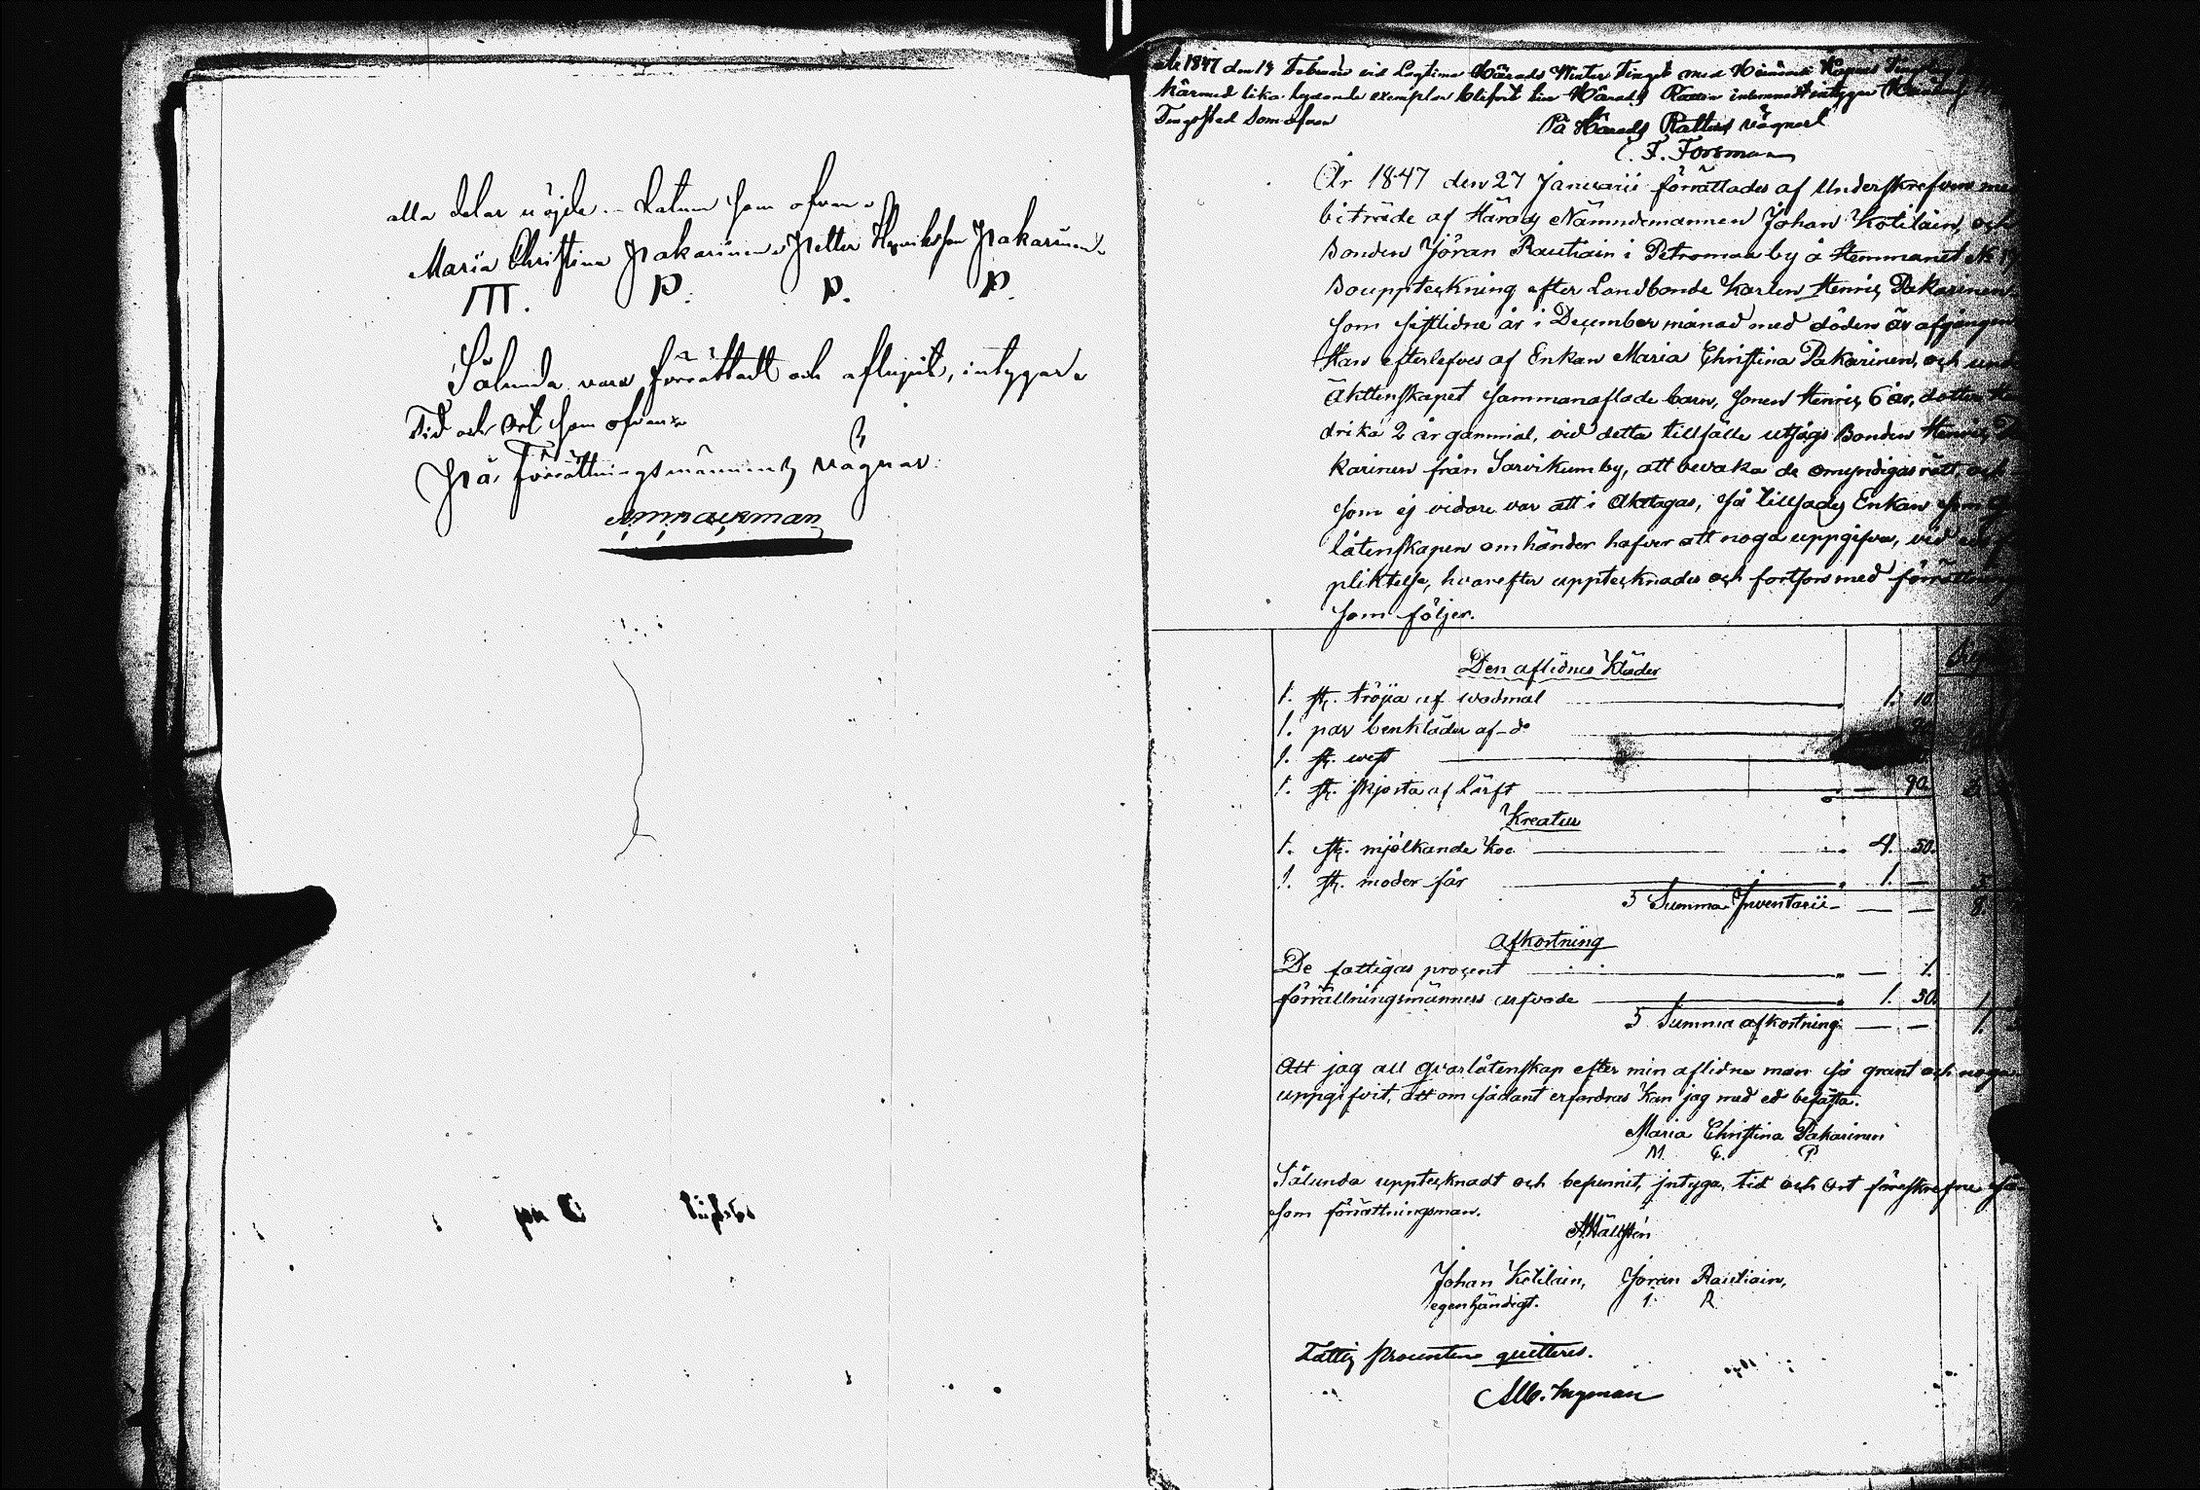 alla delar nöjde. Datum som ofvan.
Maria Christina Pakarinen Petter Henriksson Pakarinen
M. P. P. P.
Sålunda vara förrättadt och aflupit, intygar
Tid och Ort som ofvan
På Förrättningsmännens vägnar
År 1847 den 19 Februari vid Lagtima Härads Winter Tinget med
härmed lika lydande exemplar blifvit till Härads Rätten inlemnadt intygar
Tingsstad som ofvan
På Härads Rättens vägnar
C. F. Forsman
År 1847 den 27 Januarii förrättades af Underskrefven med
biträde af Härads Nämndemannen Johan Kotilain, och
Bonden Jöran Rautiain i Petromaa by å Hemmanet No
Bouppteckning efter Landbonde Karlen Henric Pakarinen
som sistlidne år i December månad med döden är afgången
Han efterlefves af Enkan Maria Christina Pakarinen, och
Äktenskapet sammanaflade barn, sonen Henric 6 år, dotter
drika 2 år gammal, vid detta tillfälle utsågs Bonden Henric
karinen från Sarvikum by, att bevaka de omyndigas rätt, och
som ej vidare var att i Akttagas, så tillsades Enkan som
låtenskapen omhänder hafver att noga uppgifva, vid
pliktelse, hvarefter upptecknades och fortfors med förrättning
som följer.
Den aflidnes Kläder
1. st. tröja af wadmal 1. 10.
1. par benkläder af do
1. st. west
1. st. skjorta af Lärft — 90.
Kreatur
1. st. mjölkande Ko 4. 50.
1. st. moder får 1. —
Summa Inventarii — — 8.
Afkortning
De fattigas procent — 1.
förrättningsmännens arfvode 1. 50. 1.
Summa afkortning — — 1.
Att jag all qvarlåtenskap efter min aflidne man så grant och noga
uppgifvit, att om sådant erfordras Kan jag med ed befästa.
Maria Christina Pakarinen
M. C. P.
Sålunda upptecknadt och befunnit, intyga, tid och Ort föreskrefne
som förrättningsman.
Johan Kotilain, Jöran Rautiain,
egenhändigt. I. R.
Fattig Procenten quitteras.
Alb. Ingman